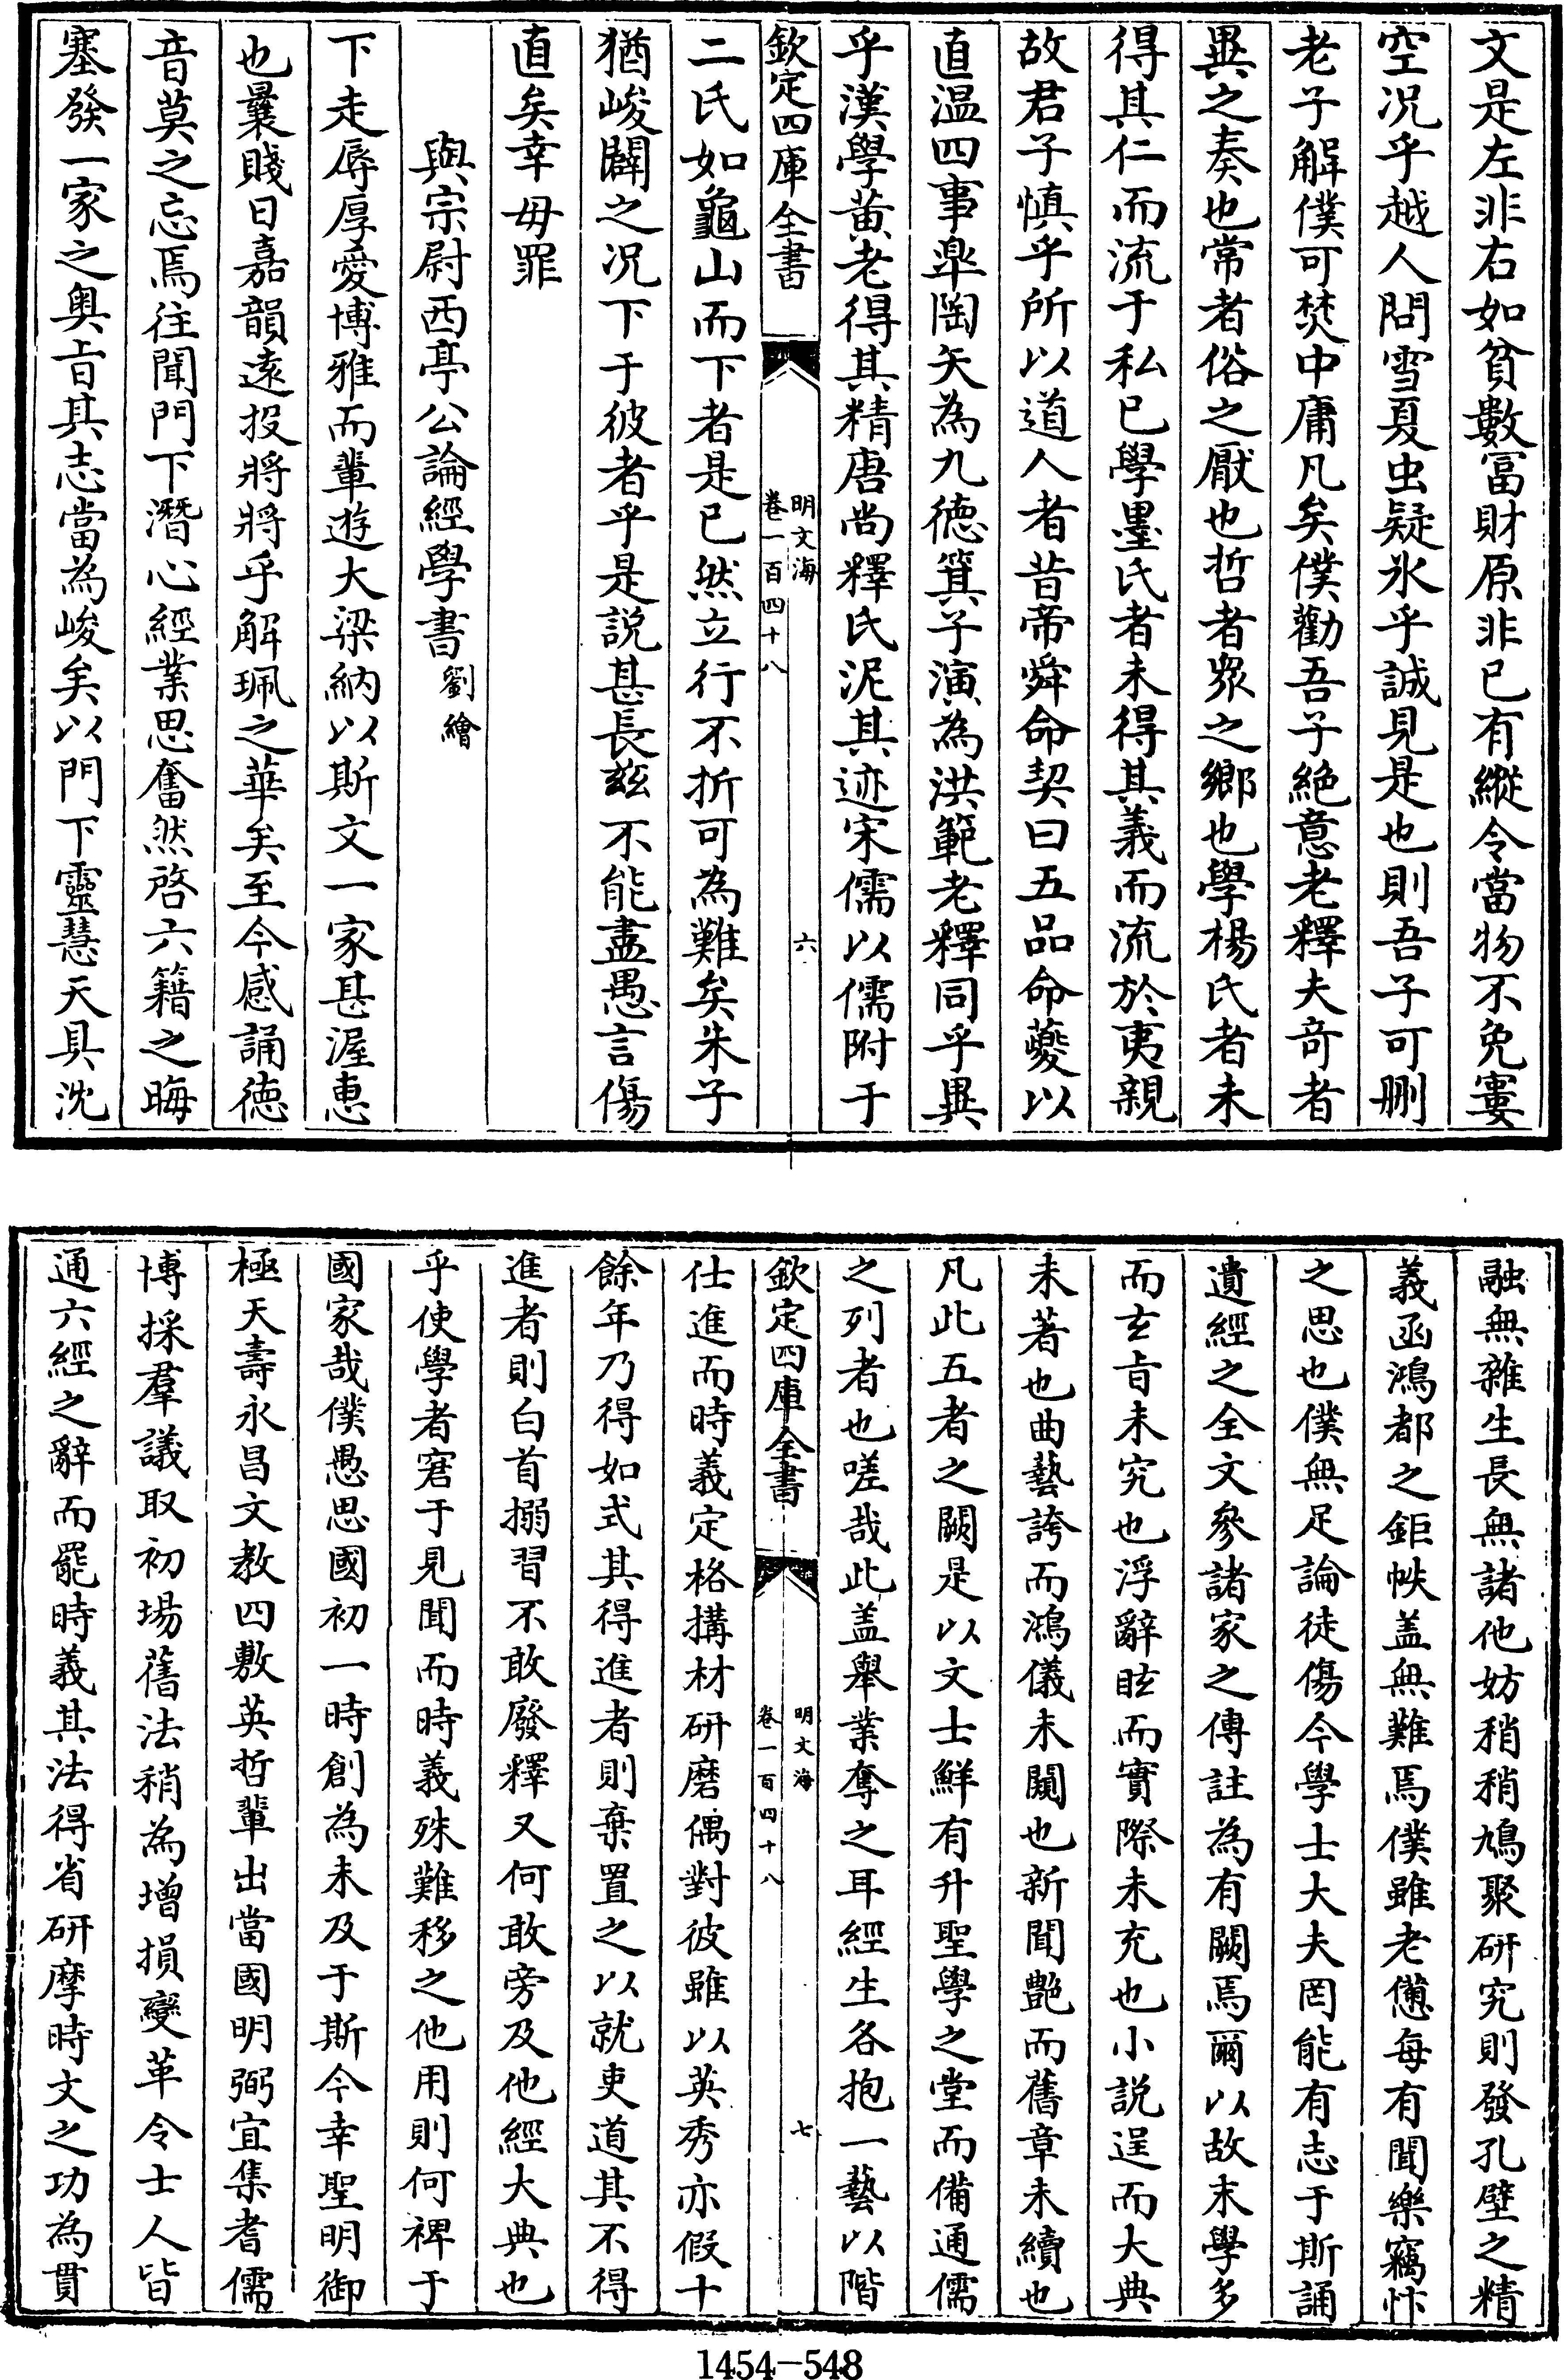 文是左非右如貧數富財原非已有縱令當物不免寠
空况乎越人問雪夏虫疑氷乎誠見是也則吾子可刪
老子解僕可焚中庸凡矣僕勸吾子絶意老釋夫竒者
異之奏也常者俗之厭也哲者衆之鄉也學楊氏者未
得其仁而流于私已學墨氏者未得其義而流於夷親
故君子慎乎所以道人者昔帝舜命契曰五品命夔以
直温四事臯陶矢為九徳箕子演為洪範老釋同乎異
乎漢學黄老得其精唐尚釋氏泥其迹宋儒以儒附于
欽定四庫全書
明文海
卷一百四十八
六
二氏如龜山而下者是已然立行不折可為難矣朱子
猶峻闢之况下于彼者乎是説甚長兹不能盡愚言傷
直矣幸毋罪
與宗尉西亭公論經學書劉繪
下走辱厚愛博雅而輩遊大梁納以斯文一家甚渥惠
也曩賤日嘉韻遠投將將乎解珮之華矣至今感誦徳
音莫之忘焉往聞門下潛心經業思奮然啓六籍之晦
塞發一家之奥㫖其志當為峻矣以門下靈慧天具沈
融無雜生長無諸他妨稍稍鳩聚研究則發孔壁之精
義函鴻都之鉅帙盖無難焉僕雖老憊每有聞樂竊忭
之思也僕無足論徒傷今學士大夫罔能有志于斯誦
遺經之全文參諸家之傳註為有闕焉爾以故末學多
而𤣥㫖未究也浮辭眩而實際未充也小説逞而大典
未著也曲藝誇而鴻儀未闚也新聞艷而舊章未續也
凡此五者之闕是以文士鮮有升聖學之堂而備通儒
之列者也嗟哉此盖舉業奪之耳經生各抱一藝以階
欽定四庫全書
明文海
卷一百四十八
七
仕進而時義定格搆材研磨偶對彼雖以英秀亦假十
餘年乃得如式其得進者則棄置之以就吏道其不得
進者則白首搦習不敢廢釋又何敢旁及他經大典也
乎使學者窘于見聞而時義殊難移之他用則何裨于
國家哉僕愚思國初一時創為未及于斯今幸聖明御
極天壽永昌文教四敷英哲輩出當國明弼宜集耆儒
博採羣議取初場舊法稍為增損變革令士人皆
通六經之辭而罷時義其法得省研摩時文之功為貫
1454—548